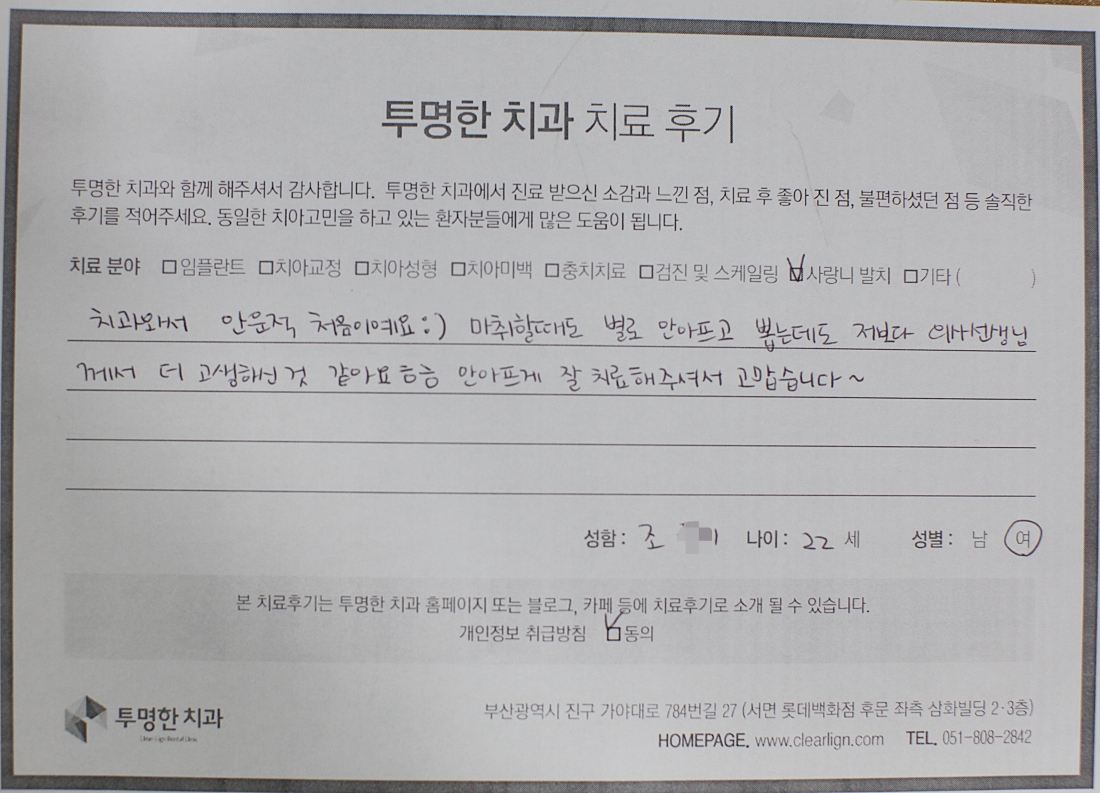 투명한 치과 치료 후기
투명한 치과와 함께 해주셔서 감사합니다. 투명한 치과에서 진료 받으신 소감과 느낀 점, 치료 후 좋아 진 점, 불편하셨던 점 등 솔직한
후기를 적어주세요. 동일한 치아고민을 하고 있는 환자분들에게 많은 도움이 됩니다.
치료 분야 □임플란트 □치아교정 □치아성형 □치아미백 □충치치료 □검진 및 스케일링 ☑사랑니 발치 □기타 ( )
치과와서 안운적 처음이예요:) 마취할때도 별로 안아프고 뽑는데도 저보다 의사선생님
께서 더 고생하신것 같아요ㅎㅎ 안아프게 잘 치료해주셔서 고맙습니다~
성함 : 조 나이 : 22 세 성별 : 남 여
본 치료후기는 투명한 치과 홈페이지 또는 블로그, 카페 등에 치료후기로 소개 될 수 있습니다.
개인정보 취급방침 ☑동의
투명한 치과
부산광역시 진구 가야대로 784번길 27 (서면 롯데백화점 후문 좌측 삼화빌딩 2·3층)
HOMEPAGE. www.clearlign.com TEL. 051-808-2842